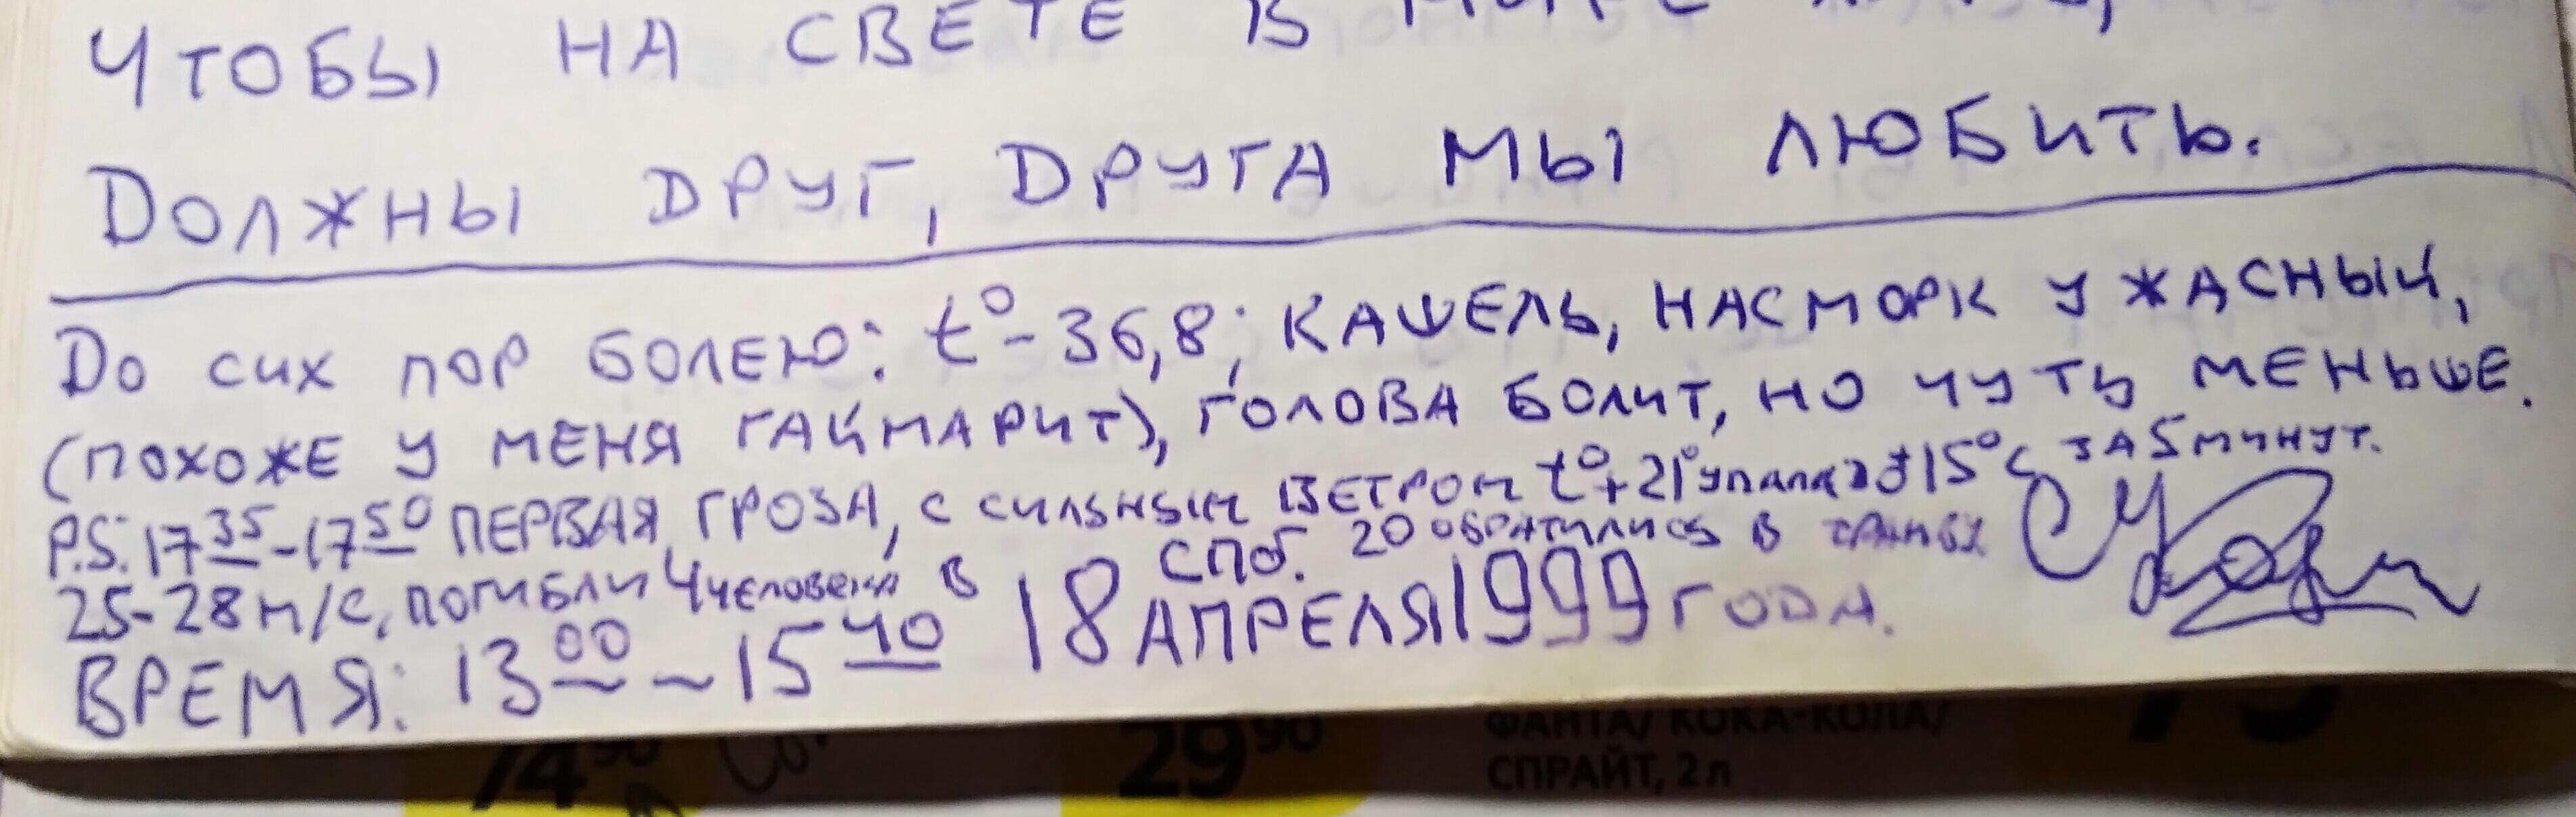 ЧТОБЫ НА СВЕТЕ В
ДОЛЖНЫ ДРУГ, ДРУГА МЫ ЛЮБИТЬ.
ДО СИХ ПОР БОЛЕЮ: t°- 36,8; КАШЕЛЬ, НАСМОРК УЖАСНЫЙ,
(ПОХОЖЕ У МЕНЯ ГАЙМАРИТ), ГОЛОВА БОЛИТ, НО ЧУТЬ МЕНЬШЕ.
P.S. 17 35 - 17 50 ПЕРВАЯ ГРОЗА, С СИЛЬНЫМ ВЕТРОМ t°+21° упала до +15°C ЗА 5 МИНУТ.
25-28 М/С, ПОГИБЛИ 4 человека В СПб. 20 обратились в
ВРЕМЯ: 13 00 - 15 40 18 АПРЕЛЯ 1999 ГОДА.
74 90
29 90
ФАНТА/ КОКА-КОЛА/
СПРАЙТ, 2 л